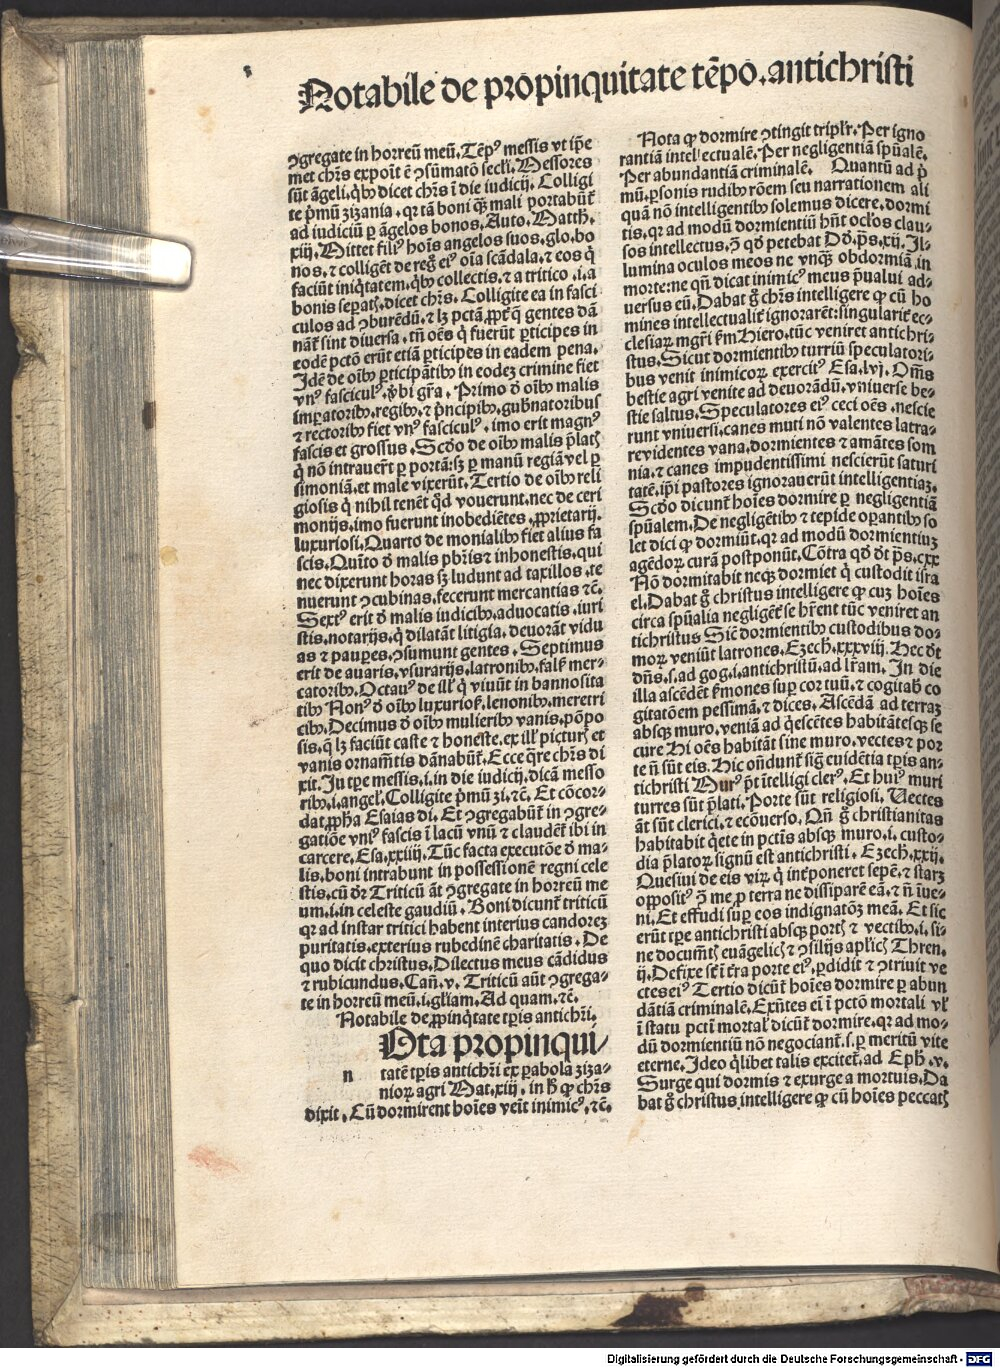 Notabile de propinquitate tēpo.antichristi
ↄgregate in horreū meū.Tēpꝰ messis vt ip̄e
met chr̄s expoīt ē ↄsūmatō secl'i.Messores
sūt āgeli.qͥbꝫ dicet chr̄s ī die iudicij. Colligi
te p̄mū zizania.qꝛ tā boni qꝫ mali portabūt̄
ad iudiciū ꝑ āgelos bonos.Auto.Matth.
xiij.Mittet filiꝰ hoīs angelos suos.glo.bo
nos.⁊ colligēt de reg̊ eiꝰ oīa scādala.⁊ eos q̇
faciūt iniq̇tatem.qͥbꝫ collectis.⁊ a tritico .i.a
bonis seꝑatꝭ.dicet chr̄s. Colligite ea in fasci
culos ad ↄburēdū.⁊ lꝫ pctā.ꝓpt̄ q̇ gentes dā
nāt̄ sint diuersa.tn̄ oēs q̇ fuerūt ꝑticipes in
eodē pctō erūt etiā ꝑticipes in eadem pena.
Idē de oībꝫ ꝑticipātibꝫ in eodeꝫ crimine fiet
vnꝰ fasciculꝰ.v̄bi gr̄a. Primo d̄ oībꝫ malis
imꝑatoribꝫ.regibꝫ.⁊ p̄ncipibꝫ.gub̄natoribus
⁊ rectoribꝫ fiet vnꝰ fasciculꝰ.imo erit magnꝰ
fascis et grossus.Scd̄o de oībꝫ malis p̄latꝭ
q̇ nō intrauer̄t ꝑ portā:sꝫ ꝑ manū regiā vel ꝑ
simoniā.et male vixerūt.Tertio de oībꝫ reli
giosis q̇ nihil tenēt q̇d vouerunt.nec de ceri
monijs.imo fuerunt inobediētes.ꝓprietarij.
luxuriosi.Quarto de monialibꝫ fiet alius fa
scis.Quīto d̄ malis pb̄ris ⁊ inhonestis.qui
nec dixerunt horas sꝫ ludunt ad taxillos.te
nuerunt ↄcubinas.fecerunt mercantias ⁊c̄.
Sextꝰ erit d̄ malis iudicibꝫ.aduocatis.iuri
stis.notarijs.q̇ dilatāt litigia.deuorāt vidu
as ⁊ pauꝑes.ↄsumunt gentes. Septimus
erit de auaris.vsurarijs.latronibꝫ.fals̄ mer-
catoribꝫ.Octauꝰ de ill̄ q̇ viuūt in bannosita
tibꝫ Nonꝰ d̄ oībꝫ luxurios̄.lenonibꝫ.meretri
cibꝫ.Decimus d̄ oībꝫ mulieribꝫ vanis.pōpo
sis.q̇ lꝫ faciūt caste ⁊ honeste.ex ill̄ picturꝭ et
vanis ornam̄tis dānabūt̄.Ecce q̄re chr̄s di
xit.In tꝑe messis.i.in die iudicij.dicā messo
ribꝫ.i.angel̄.Colligite p̄mū zi.⁊c̄. Et cōcor-
dat.ꝓph̄a Esaias di. Et ↄgregabūt̄ in ↄgre-
gatiōe vnīꝰ fascis ī lacū vnū ⁊ claudēt̄ ibi in
carcere.Esa.xxiiij.Tūc facta executōe d̄ ma-
lis.boni intrabunt in possessionē regni cele
stis.cū dr̄ Triticū āt ↄgregate in horreū me
um.i.in celeste gaudiū. Boni dicunt̄ triticū
qꝛ ad instar tritici habent interius candoreꝫ
puritatis.exterius rubedinē charitatis. De
quo dicit christus.Dilectus meus cādidus
⁊ rubicundus.Can̄.v. Triticū aūt ↄgrega-
te in horreū meū.i.gl̄iam.Ad quam.⁊c̄.
Notabile de.ꝓpinq̇tate tꝑis antichr̄i.
Ota propinqui/
n tatē tꝑis antichr̄i ex ꝑabola ziza-
nioꝝ agri Mat.xiij.in h̊ ꝙ chr̄s
dixit.Cū dormirent hoīes veīt inimicꝰ.⁊c̄.
Nota ꝙ dormire ↄtingit tripl'r.Per igno
rantiā intellectualē.Per negligentiā sp̄ualē.
Per abundantiā criminalē. Quantū ad p̄
mū.ꝑsonis rudibꝫ rōem seu narrationem ali
quā nō intelligentibꝫ solemus dicere.dormi
tis.qꝛ ad modū dormientiū hn̄t ocl'os clau-
sos intellectus.ↄ̄ qd̄ petebat Dd̄.ps̄.xij.Il-
lumina oculos meos ne vnqꝫ obdormiā in
morte:ne qn̄ dicat inimicꝰ meus p̄ualui ad-
uersus eū.Dabat g̊ chr̄s intelligere ꝙ cū ho
mines intellectualit̄ ignorarēt:singularit̄ ec-
clesiaꝝ mgr̄i s̄m Hiero.tūc veniret antichri-
stus.Sicut dormientibꝫ turriū speculatori-
bus venit inimicoꝝ exercitꝰ Esa.lvj. Om̄s
bestie agri venite ad deuorādū.vniuerse be-
stie saltus.Speculatores eiꝰ ceci oēs.nescie
runt vniuersi.canes muti nō valentes latra-
re.videntes vana.dormientes ⁊ amātes som
nia.⁊ canes impudentissimi nescierūt saturi
tatē.ip̄i pastores ignorauerūt intelligentiaꝫ.
Scd̄o dicunt̄ hoīes dormire ꝑ negligentiā
sp̄ualem.De negligētibꝫ ⁊ tepide oꝑantibꝫ so
let dici ꝙ dormiūt.qꝛ ad modū dormientiuꝫ
agēdoꝝ curā postponūt.Cōtra qd̄ dt̄ ps̄.cxx
Nō dormitabit neqꝫ dormiet q̇ custodit isra
el.Dabat g̊ christus intelligere ꝙ cuꝫ hoīes
circa sp̄ualia negligēt̄ se hr̄ent tūc veniret an
tichristus Sic̄ dormientibꝫ custodibus do-
moꝝ veniūt latrones.Ezech.xxxviij. Hec dt̄
dn̄s.s.ad gog.i.antichristū.ad lr̄am. In die
illa ascēdēt s̄mones suꝑ cor tuū.⁊ cogitab̄ co
gitatōem pessimā.⁊ dices.Ascēdā ad terraꝫ
absqꝫ muro.veniā ad q̇escētes habitātesqꝫ se
cure Hi oēs habitāt sine muro.vectes ⁊ por
te n̄ sūt eis.Hic on̄dunt̄ sig̊ euidētia tꝑis an-
tichristi Murꝰ p̄t ītelligi clerꝰ.Et huiꝰ muri
turres sūt p̄lati.Porte sūt religiosi. Vectes
āt sūt clerici.⁊ ecōuerso. Qn̄ g̊ christianitas
habitabit q̇ete in pctīs absqꝫ muro.i.custo-
dia p̄latoꝝ signū est antichristi. Ezech.xxij.
Quesiui de eis viꝝ q̇ int̄poneret sepē.⁊ starꝫ
oppositꝰ ↄ̄ me ꝓ terra ne dissiparē eā.⁊ n̄ īue-
ni.Et effudi suꝑ eos indignatōꝫ meā. Et sic
erūt tꝑe antichristi absqꝫ portꝭ ⁊ vectibꝫ.i.si-
ne docum̄tꝭ euāgelicꝭ ⁊ ↄsilijs apl'icꝭ Thren.
ij.Defixe sr̄t ī t̄ra porte eiꝰ.ꝑdidit ⁊ ↄtriuit ve
ctes eiꝰ Tertio dicūt̄ hoīes dormire ꝑ abun
dātiā criminalē.Exn̄tes ei ī pctō mortali vl̄
ī statu pctī mortal̄ dicūt̄ dormire.qꝛ ad mo-
dū dormientiū nō negociant̄.s.ꝑ meritū vite
eterne.Ideo q̇libet talis excitet̄.ad Eph.v.
Surge qui dormis ⁊ exurge a mortuis.Da
bat g̊ christus intelligere ꝙ cū hoīes peccatꝭ
Digitalisierung gefördert durch die Deutsche Forschungsgemeinschaft - DFG